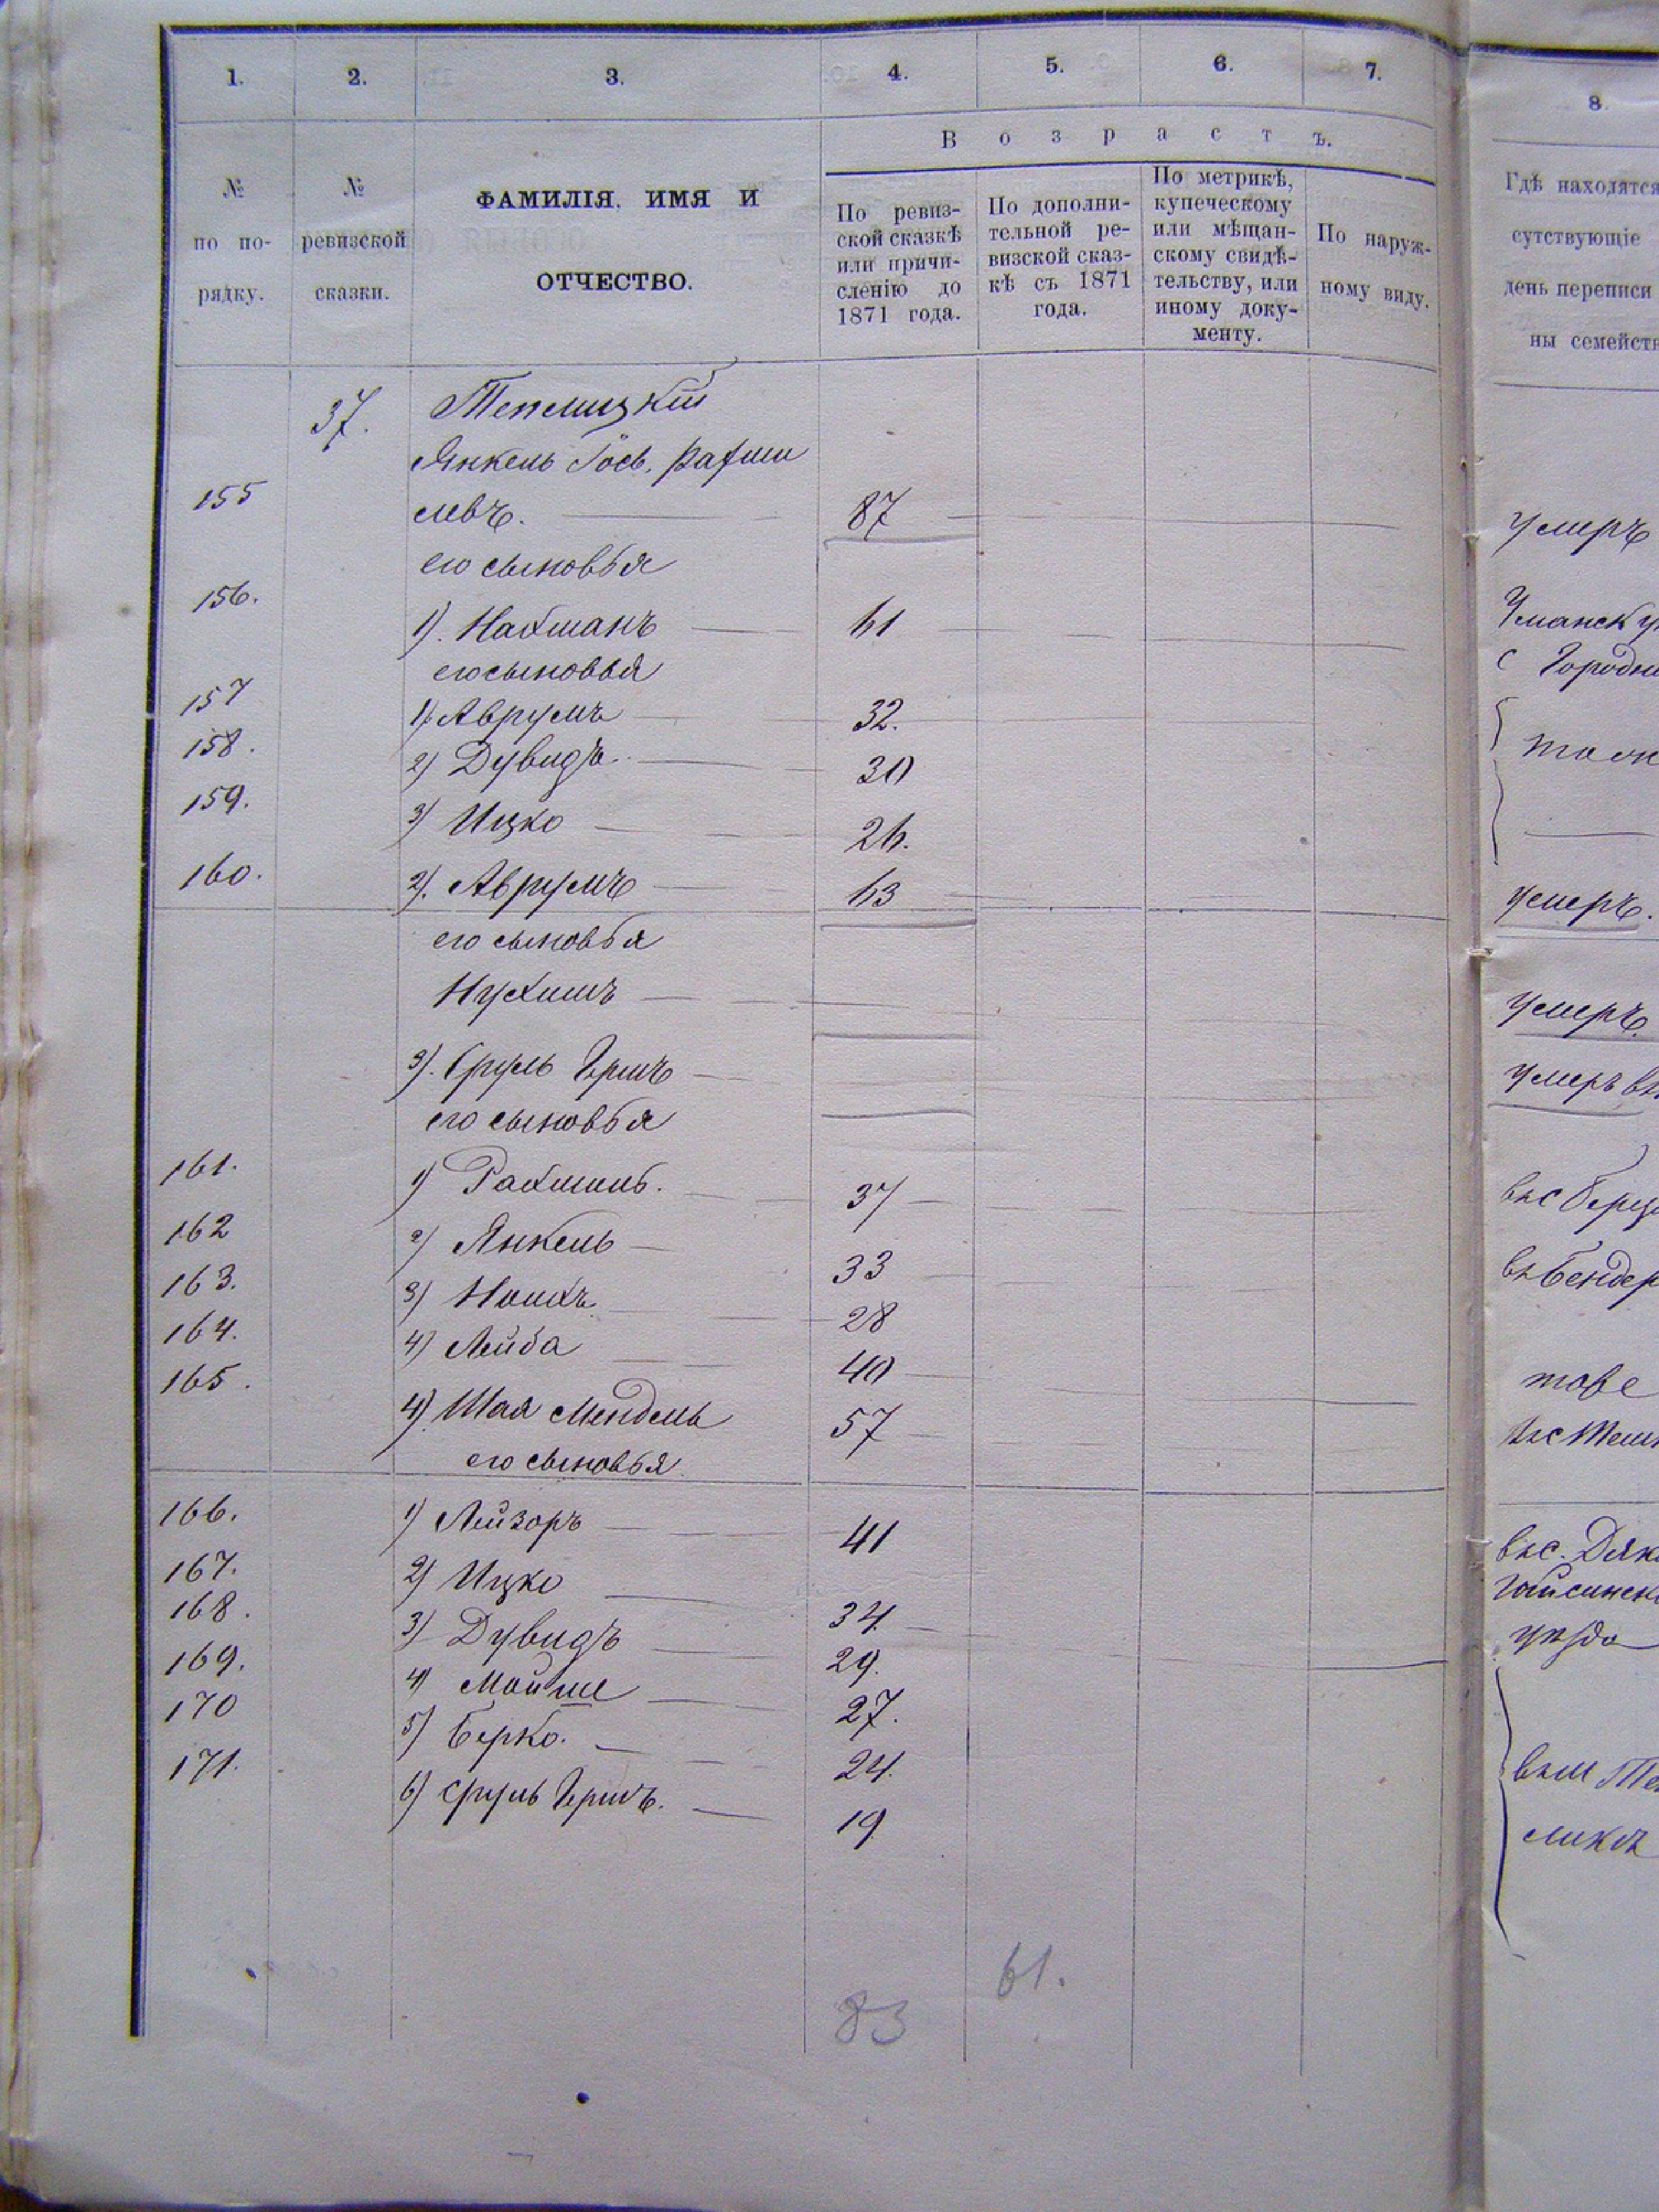 1. 2. 3. 4. 5. 6. 7. 8.
Возрастъ.
№ по порядку.
№ ревизской сказки.
ФАМИЛІЯ, ИМЯ И
ОТЧЕСТВО.
По ревиз-
ской сказкѣ
или причи-
сленію до
1871 года.
По дополни-
тельной ре-
визской сказ-
кѣ съ 1871
года.
По метрикѣ,
купеческому
или мѣщан-
скому свидѣ-
тельству, или
иному доку-
менту.
По наруж-
ному виду.
Гдѣ находятся
сутствующіе
день переписи
ны семейств
37. Теплицкій
Янкель Іось
155 87 умеръ
его сыновья
156. 1). Нахманъ 61 Уманск
его сыновья с Городни
157 1) Аврумъ 32.
158. 2) Дувидъ 30
159. 3) Ицко 26.
160. 2). Аврумъ 63 умеръ.
его сыновья
Нухимъ умеръ.
3). Сруль Гершъ умеръ
его сыновья
161. 1) Рахмиль. 37
162 2) Янкель 33 въ Бендер
163. 3) 28
164. 4) Лейба 40
165. 4) Шая Мендель 57
его сыновья
166. 1) Лейзоръ 41
167. 2) Ицко 34. Гайсинск
168. 3) Дувидъ 29. уѣзда
169. 4) Мойше 27.
170 5) Берко. 24.
171. 6) Сруль Гершъ. 19
61.
83